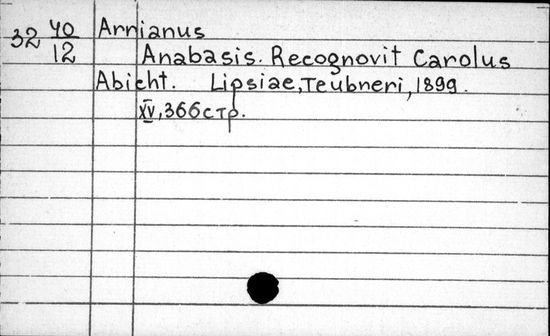 32 40/12 Arrianus
Anabasis. Recognovit Carolus
Abicht. Lipsiae, Teubneri, 1899.
XV, 366 стр.